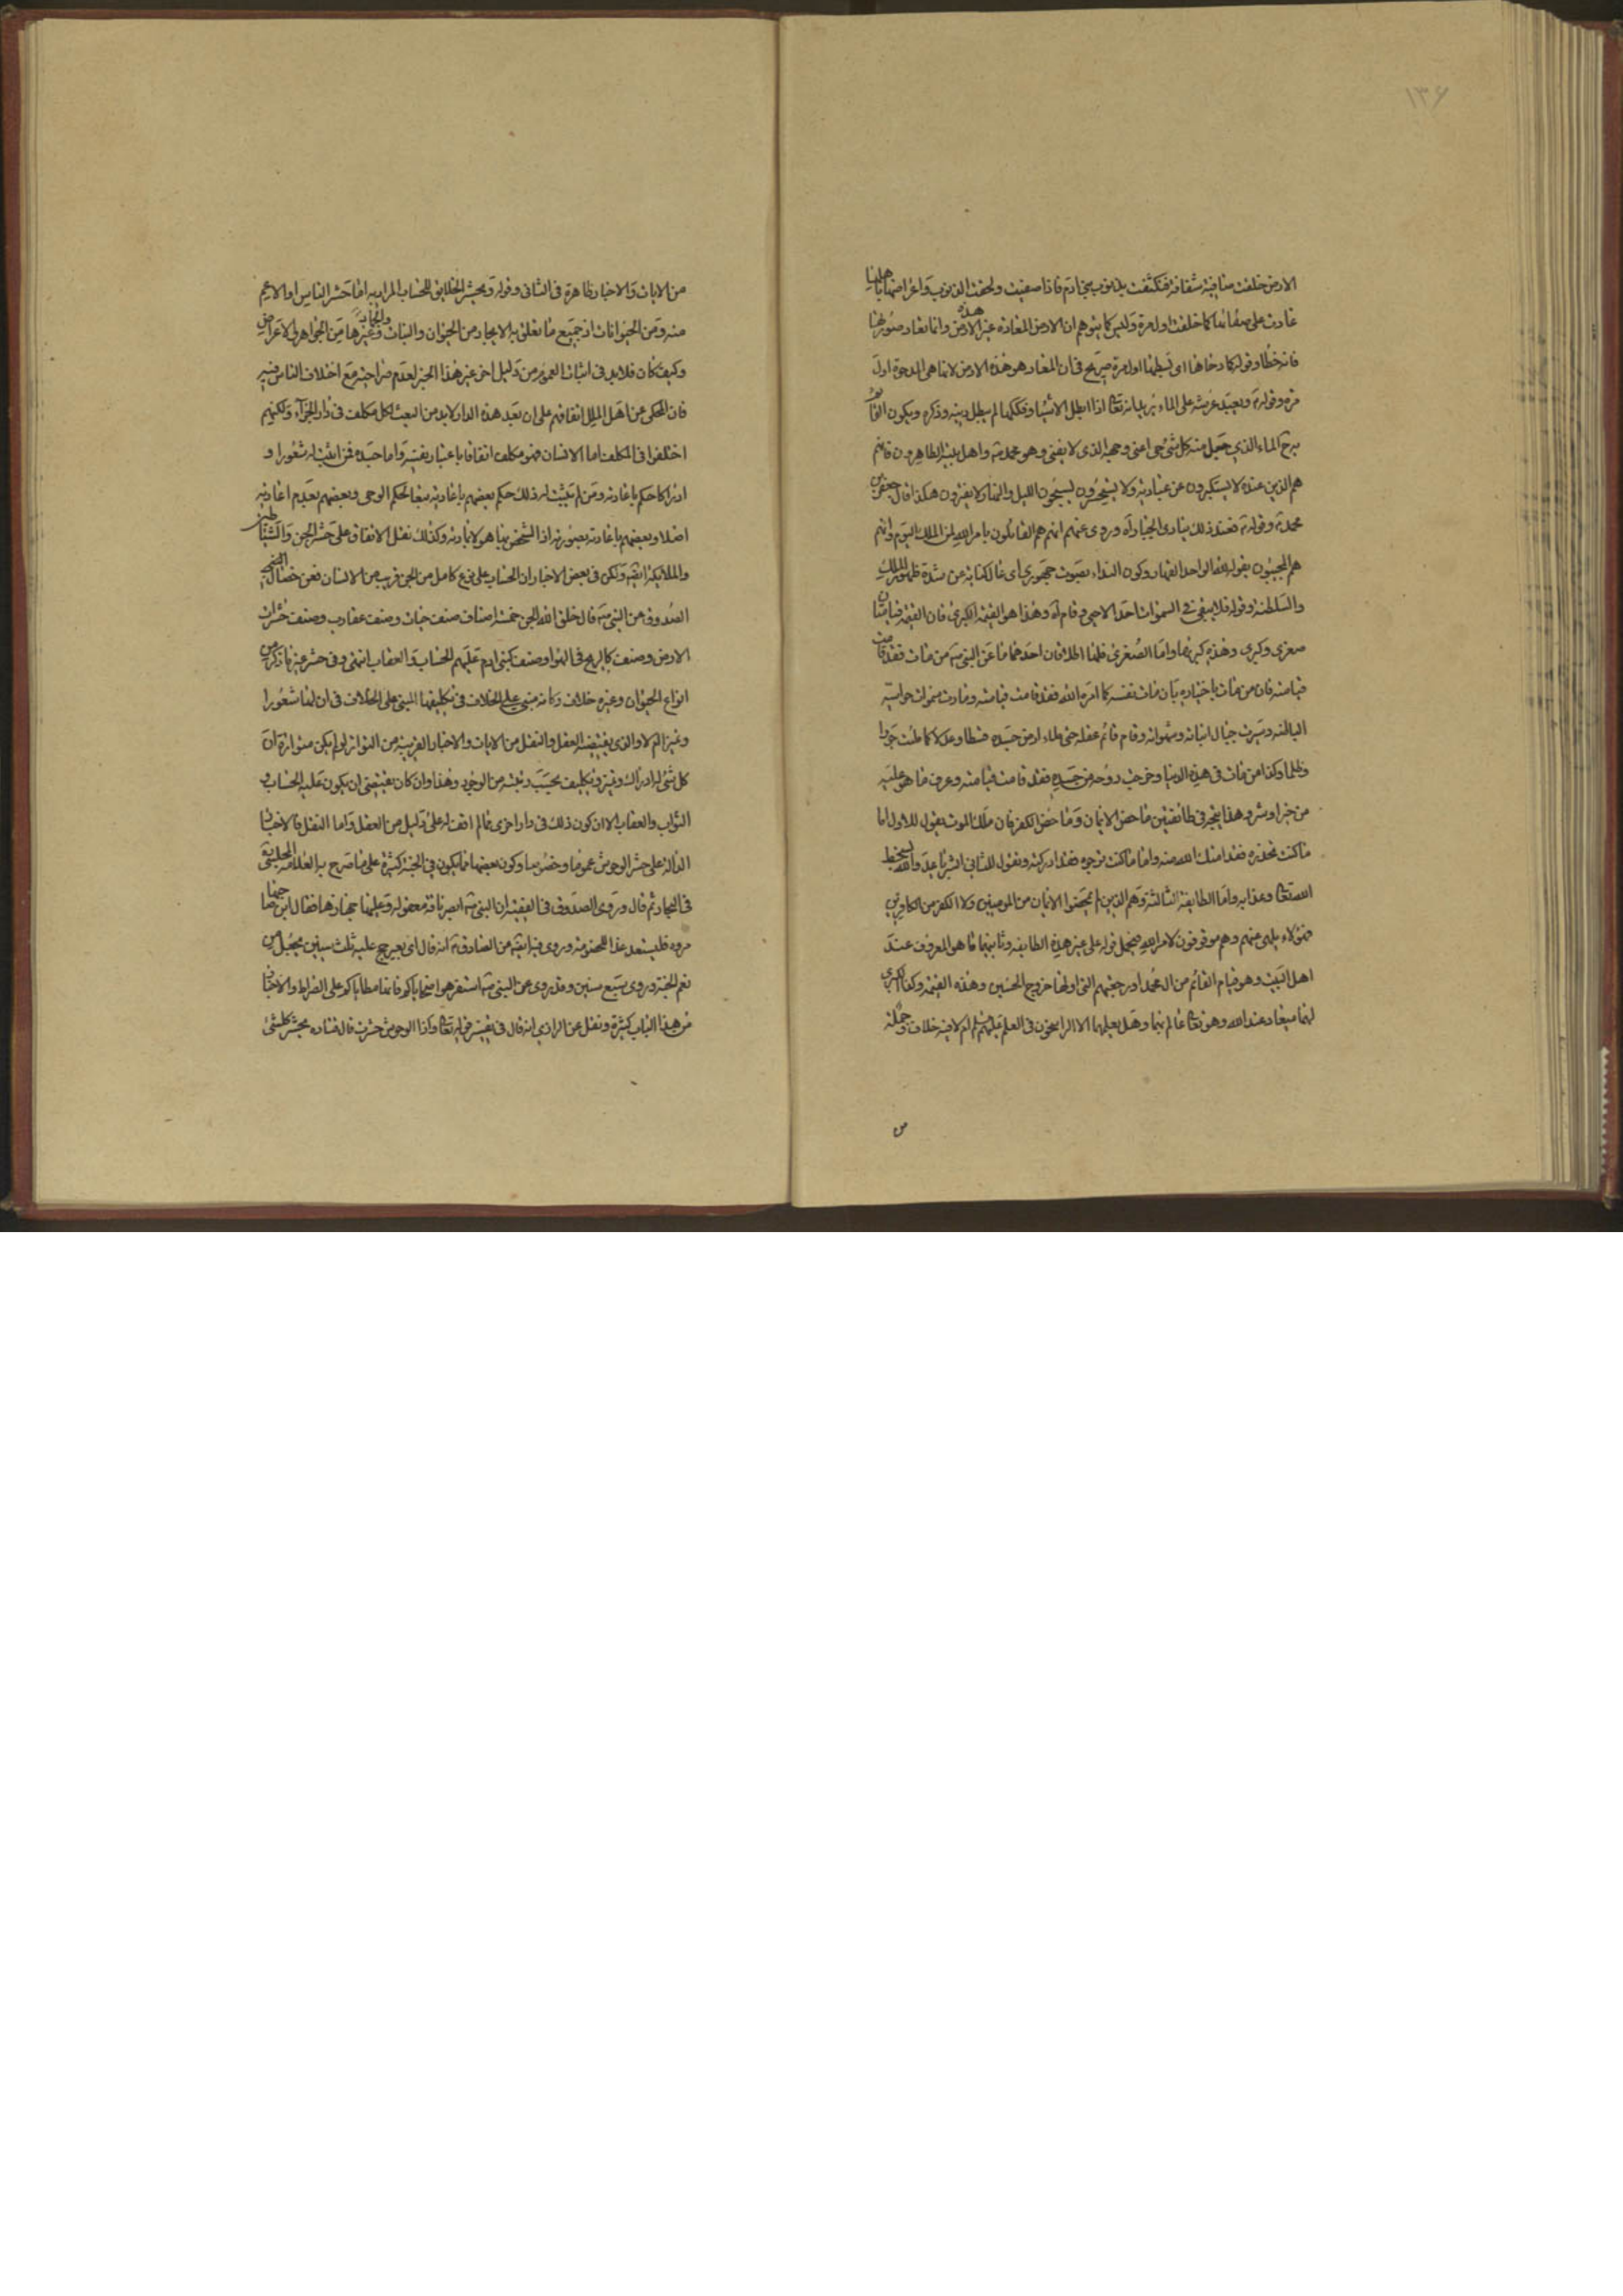 ١٣۶
الارض خلقت صافية شفافة فتكثفت بذنوب بنى ادم فاذا صفيت ولحقت الذنوب واعراضها باهلها
عادت على صفائها كما خلقت اول مرة وليس كما يتوهم ان الارض المعادة غير هذه الارض وانما تعاد صورتها
فانه خطأ وقوله كما دحاها اى بسطها اول مرة صريح فى ان المعاد هو هذه الارض لانها هى المدحوة اول
مرة وقوله ويعيد عرشه على الماء يريد انه تعالى اذا ابطل الاشياء وفككها لم يبطل دينه وذكره ويكون القائم
الماء الذي جعل منه كل شئ حى اعنى وجهه الذى لا يفنى وهو محمد واهل بيته الطاهرون فانهم
هم الذين عنده لا يستكبرون عن عبادته ولا يستحسرون يسبحون الليل والنهار لا يفترون هكذا قال جعفر بن
محمد وقوله فعند ذلك ينادى الجبار اه وروى عنهم انهم هم القائلون بامر الله لمن الملك اليوم وانهم
هم المجيبون بقوله لله الواحد القهار وكون النداء بصوت جهورى اى عال كناية عن شدة ظهور الملك
والسلطنة وقوله فلا يبقى فى السموات احد الا حى وقام اه وهذا هو القيمة الكبرى فان القيمة قيامتان
صغرى وكبرى وهذه كبريهما واما الصغرى فلها اطلاقان احدهما ما عن النبى من مات فقد قامت
قيامته فان من مات باختياره بان مات نفسه كما امره الله فقد قامت قيامته ومادت سموات حواسه
البالغه وسيرت جبال انياته وشهواته وقام قائم عقله حتى ملاء ارض جسده قسطا وعدلا كما ملئت جورا
وظلما وكذا من مات فى هذه الدنيا وخرجت روحه من جسده فقد قامت قيامته وعرف ما هو عليه
من خير او شر وهذا ينجر فى طائفتين ماحض الايمان وماحض الكفر فان ملك الموت يقول للاول اما
ما كنت تحذره فقد امنك الله منه واما ما كنت ترجوه فقد ادركته ويقول للثانى ابشر يا عدو الله بسخط
الله تعالى وعذابه واما الطايفة الثالثة وهم الذين لم يمحضوا الايمان من المومنين ولا الكفر من الكافرين
فهؤلاء يلهى عنهم وهم موقوفون لامر الله فيحمل قوله على غير هذه الطايفه وثانيهما ما هو المعروف عند
اهل البيت وهو قيام القائم من ال محمد او رجعتهم التى اولها خروج الحسين وهذه القيمة وكذا الكبرى
لهما ميعاد عند الله وهو تعالى عالم بهما وهل يعلمهما الا الراسخون فى العلم بتعليمهم لهم ام لا فيه خلاف وجملة
من
من الايات والاخبار ظاهرة فى الثانى وقوله ويحشر الخلايق للحساب المراد به اما حشر الناس او الاعم
منه ومن الحيوانات او جميع ما تعلق به الايجاد من الحيوان والنبات والجماد وغيرها من الجواهر والاعراض
وكيف كان فلابد فى اثبات العموم من دليل اخر غير هذا الخبر لعدم صراحته مع اختلاف الناس فيه
فان المحكى عن اهل الملل اتفاقهم على ان بعد هذه الدار لابد من البعث لكل مكلف فى دار الجزآء ولكنهم
اختلفوا فى المكلف اما الانسان فهو مكلف اتفاقا باعتبار نفسه واما جسده فمن اثبت له شعورا و
ادراكا حكم باعادته ومن لم يثبت له ذلك حكم بعضهم باعادته تبعا لحكم الوحى وبعضهم بعدم اعادته
اصلا وبعضهم باعادته بصورته اذ الشخص بها هو لا بمادته وكذلك نقل الاتفاق على حشر الجن والشياطين
والملائكة ايضا ولكن فى بعض الاخبار ان الحساب على نوع كامل من الجن قريب من الانسان فعن خصال الشيخ
الصدوق عن النبى قال خلق الله الجن خمسة اصناف صنف حيات وصنف عقارب وصنف حشرات
الارض وصنف كالريح فى الهوا وصنف كبنى ادم عليهم الحساب والعقاب انتهى وفى حشر غير ما ذكر من
انواع الحيوان وغيره خلاف وكانه مبنى على الخلاف فى تكليفها المبنى على الخلاف فى ان لها شعورا
وتميزا ام لا والذى يقتضيه العقل والنقل من الايات والاخبار القريبة من التواتر لو لم يكن متواترة ان
كل شئ له ادراك وتميز وتكليف بحسب رتبته من الوجود وهذا وان كان يقتضى ان يكون عليه الحساب و
الثواب والعقاب الا ان كون ذلك فى دار اخرى فما لم اقف له على دليل من العقل واما النقل فالاخبار
الدالة على حشر الوحوش عموما وخصوصا وكون بعضها مما يكون فى الجنة كثيرة على ما صرح به العلامة المجلسى
فى البحار ثم قال وروى الصدوق فى الفقيه ان النبى ابصر ناقة معقولة وعليها جهازها فقال اين صاحبها
مروه فليستعد غدا للخصومة وروى فيه ايضا عن الصادق انه قال اى بعير حج عليه ثلث سنين يجعل من
نعم الجنة وروى سبع سنين وقد روى عن النبى استفرهوا ضحاياكم فانها مطاياكم على الصراط والاخبار
من هذا الباب كثيرة ونقل عن الرازى انه قال فى تفسير قوله تعالى واذا الوحوش حشرت قال قتاده يحشر كل شئ